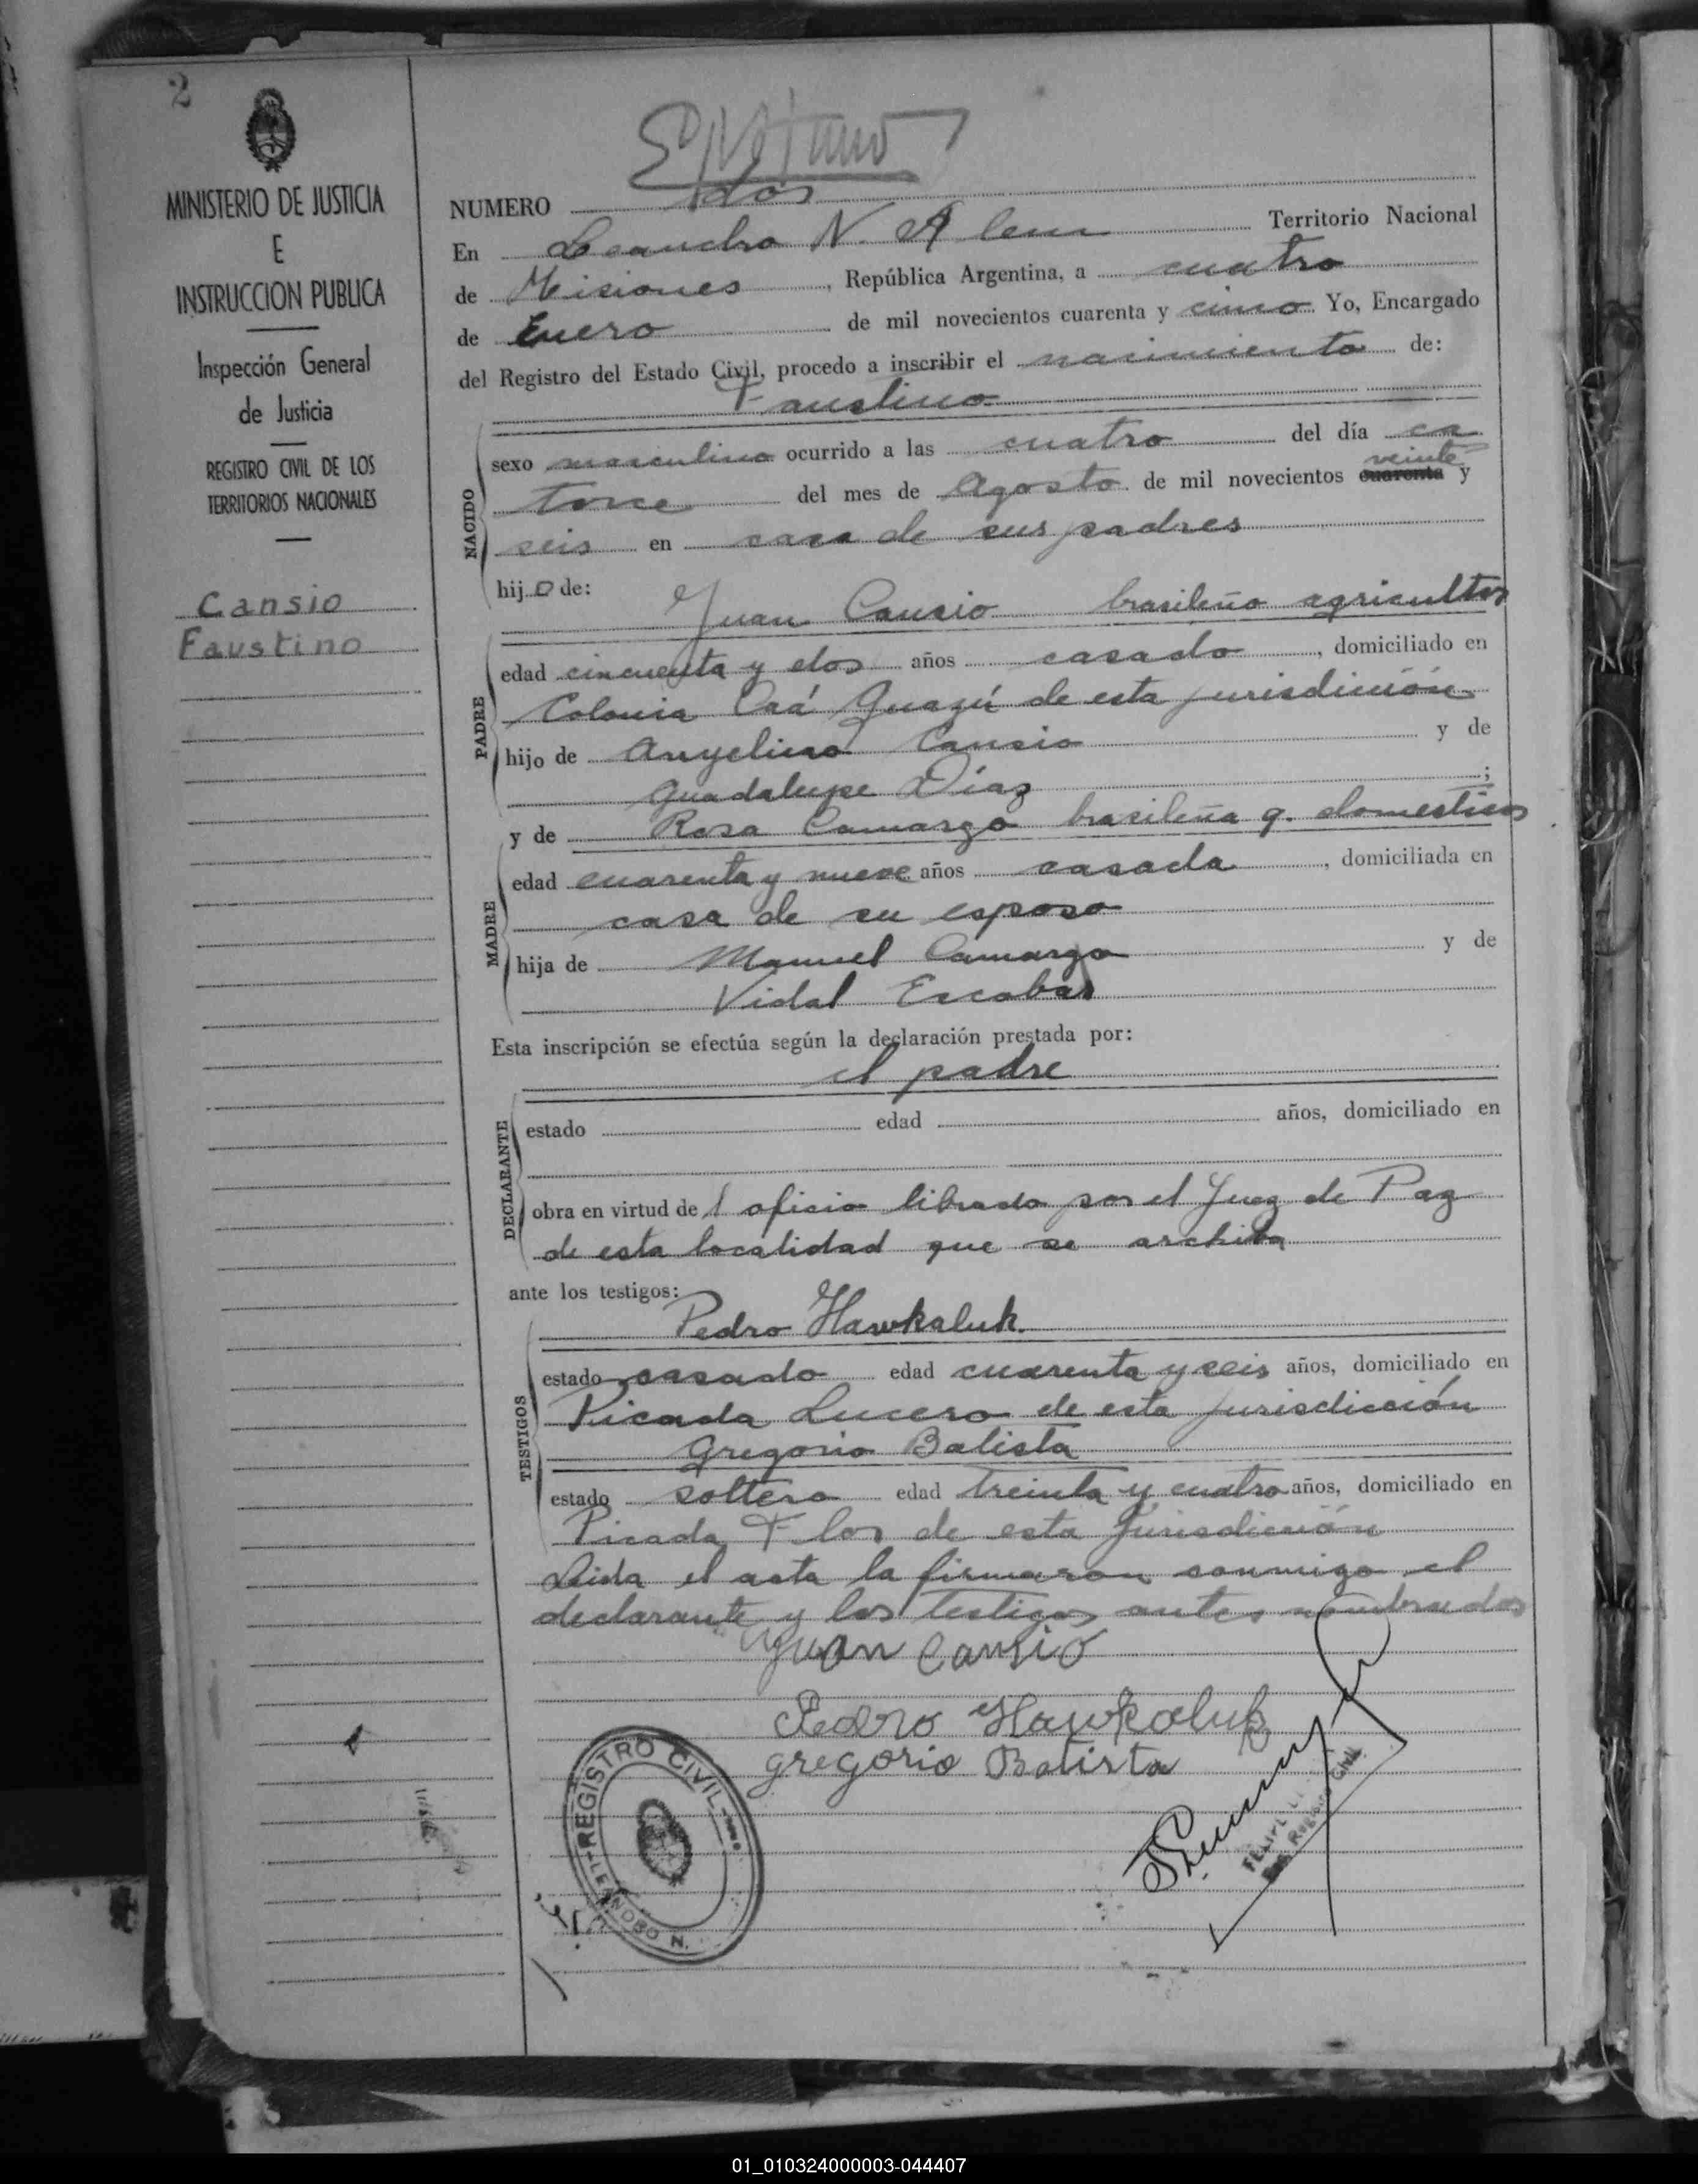 2
MINISTERIO DE JUSTICIA
E
INSTRUCCION PUBLICA
Inspección General
de Justicia
REGISTRO CIVIL DE LOS
TERRITORIOS NACIONALES
Cansio
Faustino
NUMERO dos
En Leandro N. Alem Territorio Nacional
de Misiones, República Argentina, a cuatro
de Enero de mil novecientos cuarenta y cinco Yo, Encargado
del Registro del Estado Civil, procedo a inscribir el nacimiento de:
Faustino
NACIDO
sexo masculino ocurrido a las cuatro del día ca
veinte
torce del mes de Agosto de mil novecientos cuarenta y
seis en casa de sus padres
hijo de:
Juan Cansio brasileño agricultor
PADRE
edad cincuenta y dos años casado, domiciliado en
Colonia Caá Guazú de esta jurisdicción
hijo de Angelino Cansio y de
Guadalupe Díaz;
y de Rosa Camargo brasileña q. domesticos
MADRE
edad cuarenta y nueve años casada, domiciliada en
casa de su esposo
hija de Manuel Camargo y de
Vidal Escobar
Esta inscripción se efectúa según la declaración prestada por:
el padre
DECLARANTE
estado edad años, domiciliado en
obra en virtud de 1 oficio librado por el Juez de Paz
de esta localidad que se archiva
ante los testigos:
Pedro Hawkaluk
TESTIGOS
estado casado edad cuarenta y seis años, domiciliado en
Picada Lucero de esta jurisdicción
Gregorio Batista
estado soltero edad treinta y cuatro años, domiciliado en
Picada Flor de esta Jurisdicción
Leida el acta la firmaron conmigo el
declarante y los testigos antes nombrados
Juan Cansio
Pedro Hawkaluk
gregorio Batista
REGISTRO CIVIL
LEANDRO N.
01_010324000003-044407